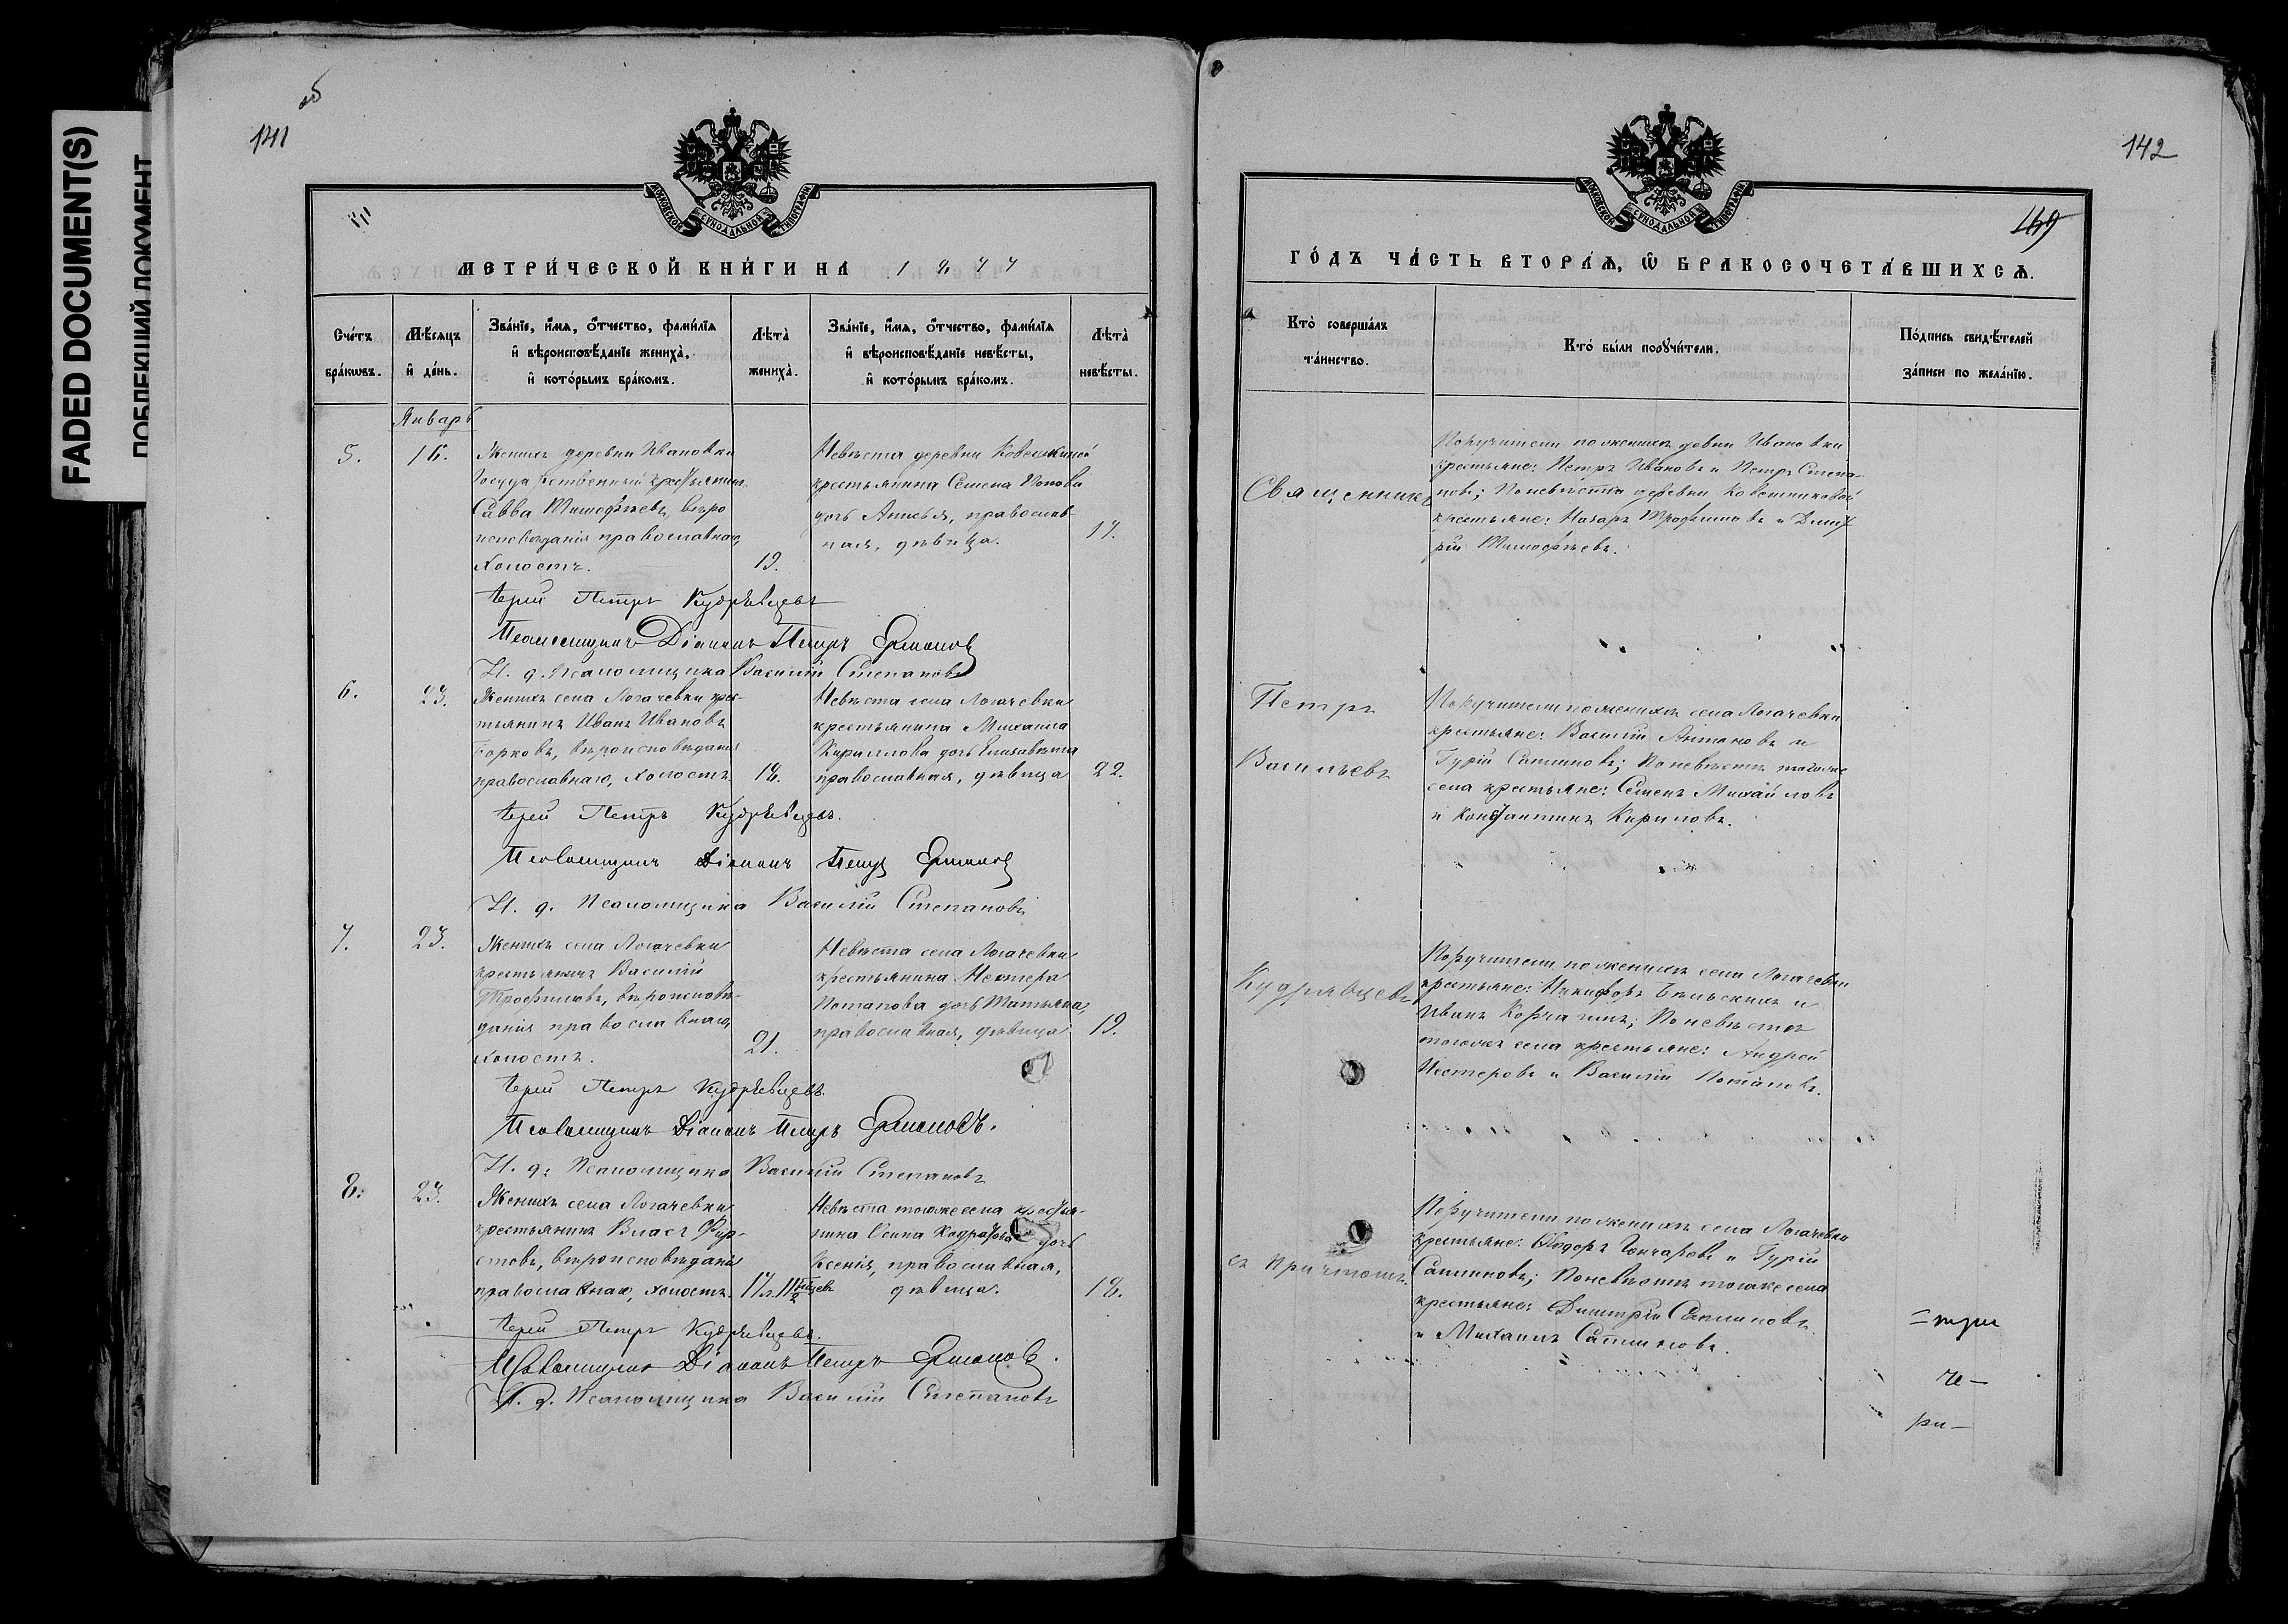 FADED DOCUMENT(S)
ПОБЛЕКШИЙ ДОКУМЕНТ
об
141
МОСКОВСКОЙ СѴНОДАЛЬНОЙ ТИПОГРАФІИ
МЕТРИ́ЧЕСКОЙ КНИ́ГИ НА 1877
Сче́тъ бра́кωвъ.
Мѣ́сяцъ и҆ де́нь.
Зва́нїе, и҆́мя, ѻ҆́тчество, фами́лїя и҆ вѣроисповѣ́данїе жениха̀, и҆ кото́рымъ бра́комъ.
Лѣ́та̀ жениха̀.
Зва́нїе, и҆́мя, ѻ҆́тчество, фами́лїя и҆ вѣроисповѣ́данїе невѣ́сты, и҆ кото́рымъ бра́комъ.
Лѣ́та̀ невѣ́сты.
Январь
5.
16.
Женихъ деревни Ивановки
Государственный крестьянинъ
Савва Тимофѣевъ, вѣро
исповѣданія православнаго,
холостъ.
19.
Невѣста деревни
крестьянина Семена Попова
дочь православ-
ная, дѣвица.
17.
Іерей Петръ Кудрявцевъ
Псаломщикъ Діаконъ Петръ Ермиловъ
И. д. Псаломщика Василій Степановъ
6.
23.
Женихъ села Логачевки крес-
тьянинъ Иванъ Ивановъ
вѣроисповѣданія
православнаго, холостъ.
18.
Невѣста села Логачевки
крестьянина Михаила
Кириллова дочь Елизавета
православная, дѣвица
22.
Іерей Петръ Кудрявцевъ.
Псаломщикъ Діаконъ Петръ Ермиловъ
И. д. Псаломщика Василій Степановъ
7.
23.
Женихъ села Логачевки
крестьянинъ Василій
Трофимовъ, вѣроисповѣ-
данія православнаго,
холостъ.
21.
Невѣста села Логачевки
крестьянина Нестера
Потапова дочь Татьяна,
православная, дѣвица
19.
Іерей Петръ Кудрявцевъ
Псаломщикъ Діаконъ Петръ Ермиловъ.
И. д. Псаломщика Василій Степановъ
8.
23.
Женихъ села Логачевки
крестьянинъ Власъ Фир-
стовъ, вѣроисповѣданія
православнаго, холостъ.
Невѣста тогоже села крестья-
нина Осипа дочь
Ксенія, православная,
дѣвица.
18.
Іерей Петръ Кудрявцевъ.
Псаломщикъ Діаконъ Петръ Ермиловъ.
И. д. Псаломщика Василій Степановъ
142
МОСКОВСКОЙ СѴНОДАЛЬНОЙ ТИПОГРАФІИ
ГО́ДЪ ЧА́СТЬ ВТОРА́Ѧ, Ѡ҆ БРАКОСОЧЕТА́ВШИХСѦ.
Кто̀ соверша́лъ та́инство.
Кто́ бы́ли порꙋчи́тели.
По́дпись свидѣ́телей за́писи по жела́нїю.
Священникъ
Петръ
Васильевъ
Кудрявцевъ
съ причтомъ.
Поручители по женихѣ деревни Ивановки
крестьяне: Петръ Ивановъ и Петръ Степа-
новъ; По невѣстѣ деревни
крестьяне: Назаръ Трофимовъ и Дмит-
рій Тимофѣевъ.
Поручители по женихѣ села Логачевки
крестьяне: Василій Антоновъ и
Гурій Сашиновъ; По невѣстѣ тогоже
села крестьяне: Семенъ Михайловъ
и Константинъ Кириловъ.
Поручители по женихѣ села Логачевки
крестьяне: Никифоръ Бѣльскихъ и
Иванъ Корчагинъ; По невѣстѣ
тогоже села крестьяне: Андрей
Нестеровъ и Василій Потаповъ.
Поручители по женихѣ села Логачевки
крестьяне: Ѳедоръ Гончаровъ и Гурій
Сашиновъ; По невѣстѣ тогоже села
крестьяне: Димитрій
и Михаилъ